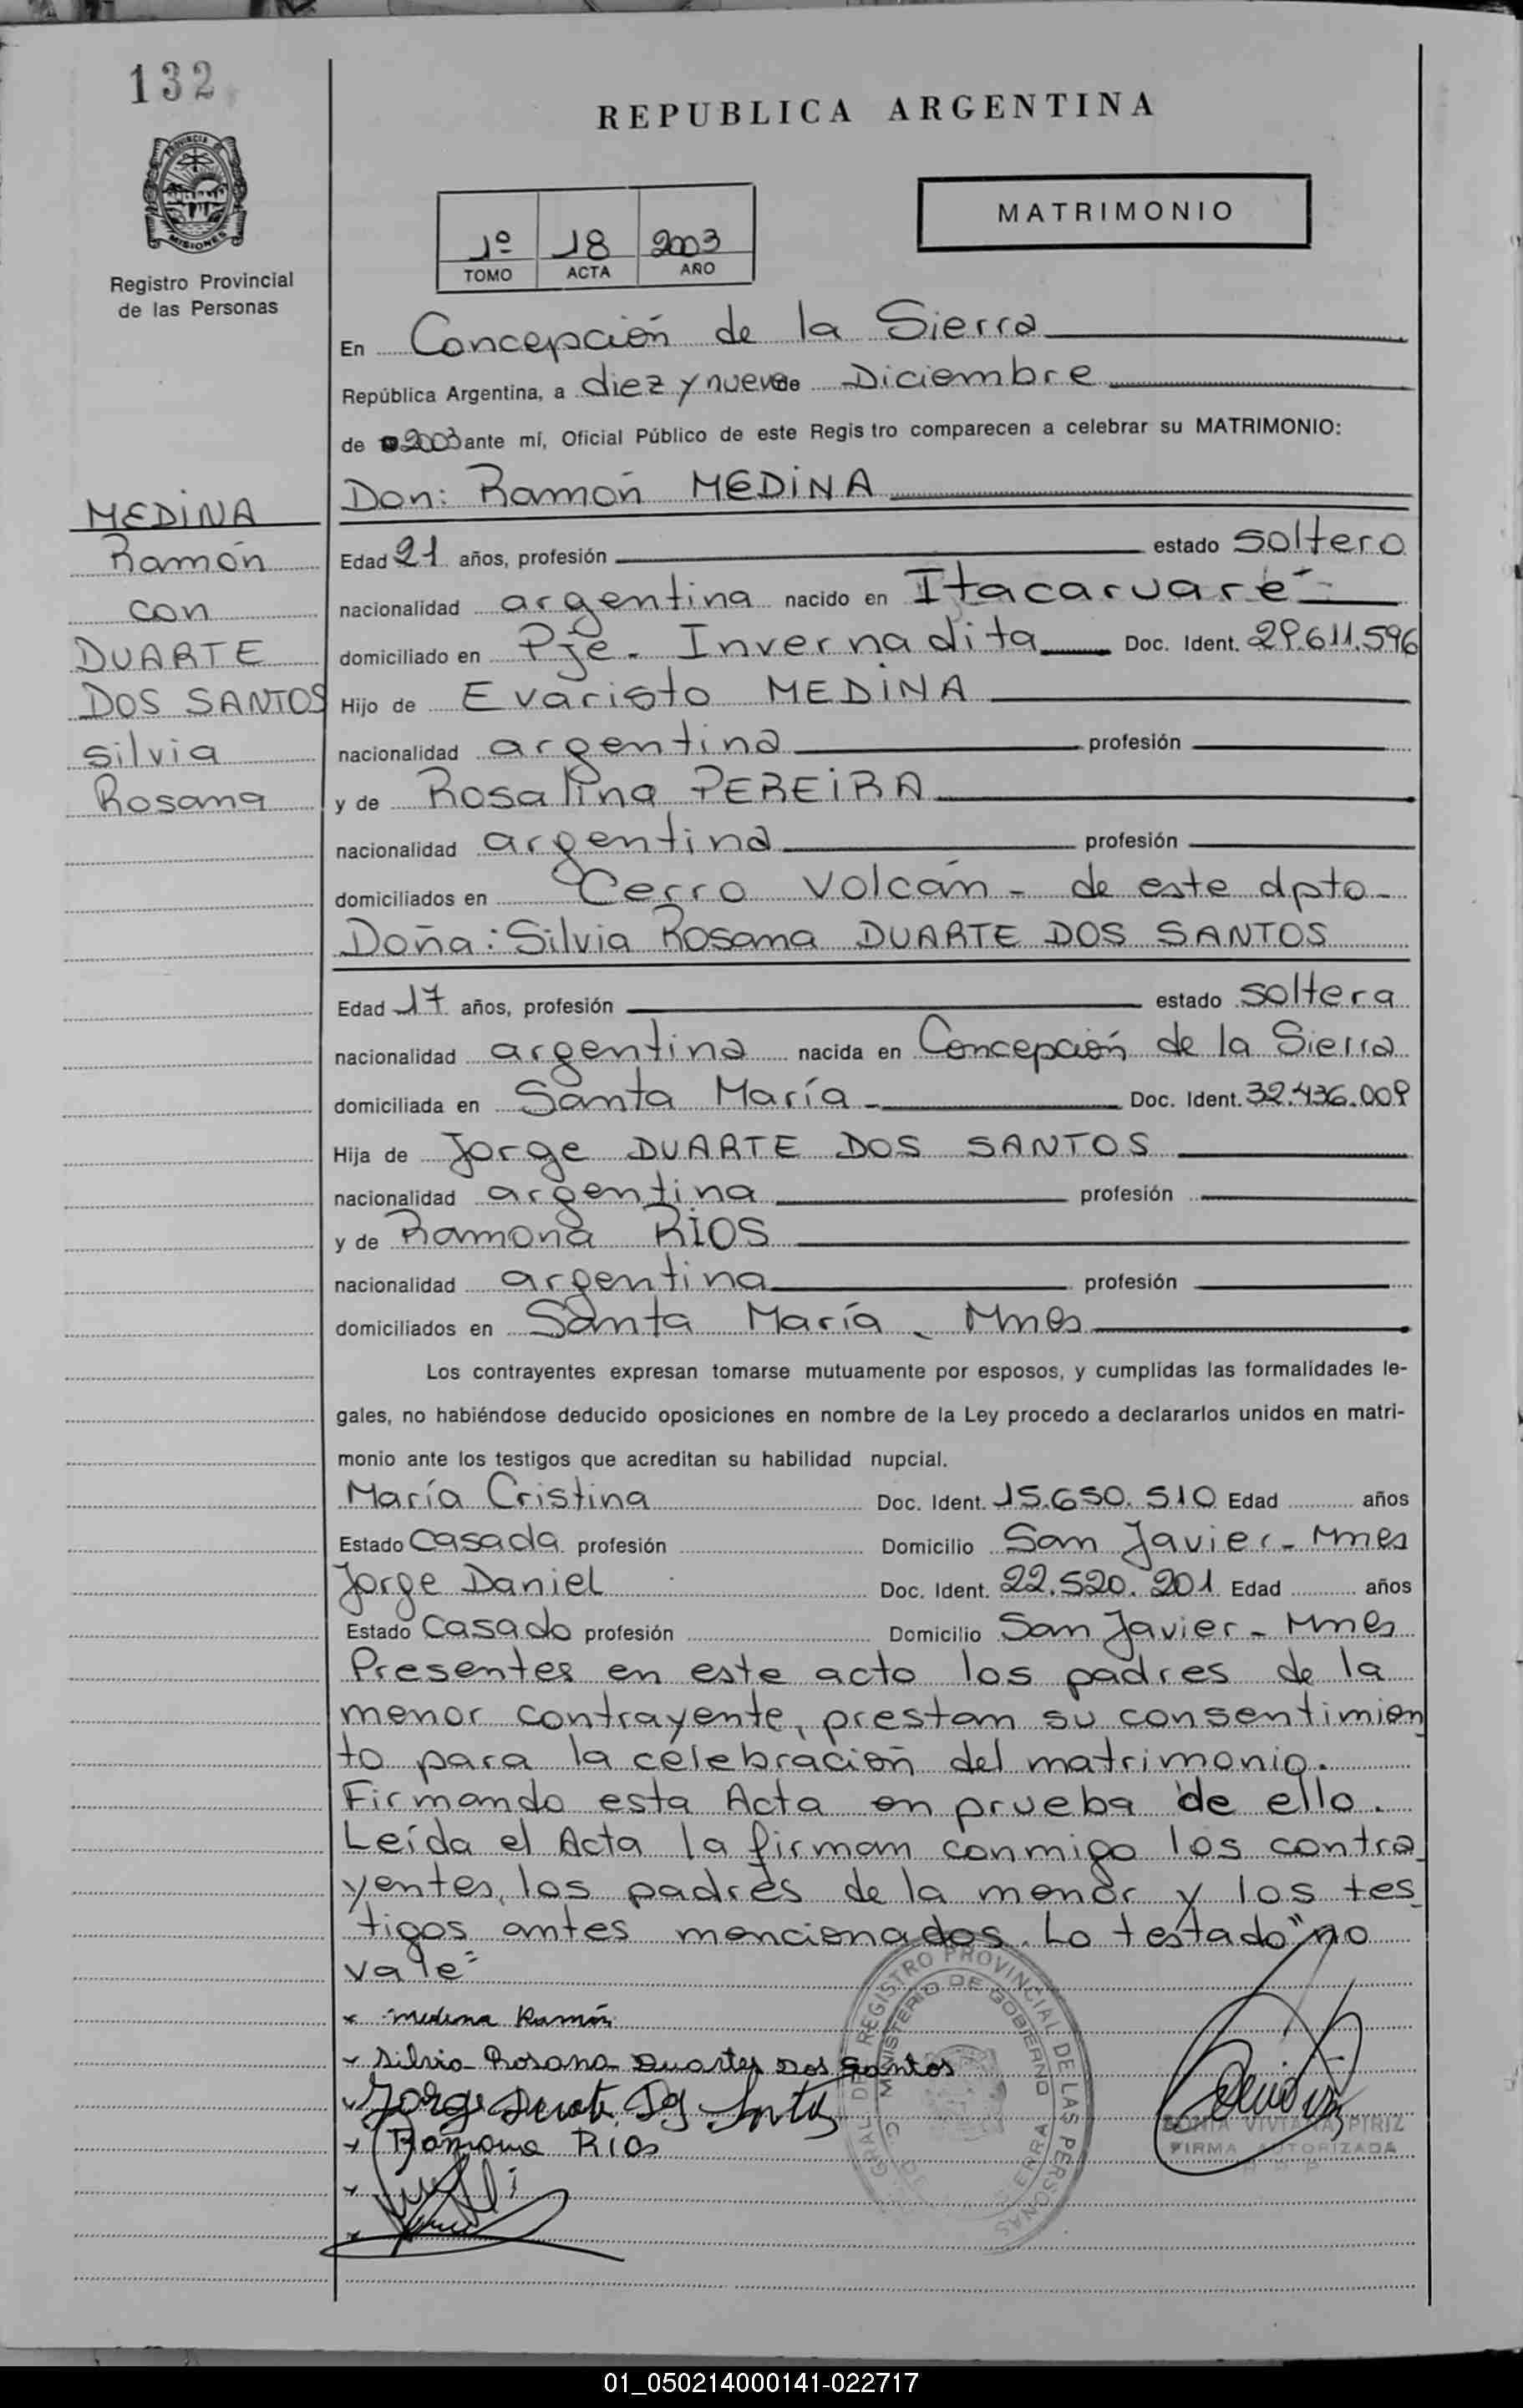 132
PROVINCIA DE
MISIONES
Registro Provincial
de las Personas
REPUBLICA ARGENTINA
MATRIMONIO
1º 18 2003
TOMO ACTA AÑO
En Concepción de la Sierra
República Argentina, a diez y nueve de Diciembre
de 2003 ante mí, Oficial Público de este Regis tro comparecen a celebrar su MATRIMONIO:
MEDINA
Ramón
con
DUARTE
DOS SANTOS
Silvia
Rosana
Don: Ramón MEDINA
Edad 21 años, profesión estado soltero
nacionalidad argentina nacido en Itacaruaré
domiciliado en Pje. Invernadita Doc. Ident. 29.611.596
Hijo de Evaristo MEDINA
nacionalidad argentina profesión
y de Rosalina PEREIRA
nacionalidad argentina profesión
domiciliados en Cerro Volcán - de este dpto-
Doña: Silvia Rosana DUARTE DOS SANTOS
Edad 17 años, profesión estado soltera
nacionalidad argentina nacida en Concepción de la Sierra
domiciliada en Santa María - Doc. Ident. 32.436.009
Hija de Jorge DUARTE DOS SANTOS
nacionalidad argentina profesión
y de Ramona RIOS
nacionalidad argentina profesión
domiciliados en Santa María - Mnes
Los contrayentes expresan tomarse mutuamente por esposos, y cumplidas las formalidades le-
gales, no habiéndose deducido oposiciones en nombre de la Ley procedo a declararlos unidos en matri-
monio ante los testigos que acreditan su habilidad nupcial.
María Cristina Doc. Ident. 15.650.510 Edad años
Estado casada profesión Domicilio San Javier - Mnes
Jorge Daniel Doc. Ident. 22.520.201 Edad años
Estado casado profesión Domicilio San Javier - Mnes
Presentes en este acto los padres de la
menor contrayente, prestan su consentimien
to para la celebración del matrimonio.
Firmando esta Acta en prueba de ello.
Leída el Acta la firman conmigo los contra
yentes, los padres de la menor y los tes
tigos antes mencionados. Lo testado "no
vale"
Medina Ramón
Silvia Rosana Duartes Dos Santos
Jorge Duarte Dos Santos
Ramona Rios
REGISTRO PROVINCIAL DE LAS PERSONAS
MINISTERIO DE GOBIERNO
SONIA VIVIANA PIRIZ
FIRMA AUTORIZADA
01_050214000141-022717